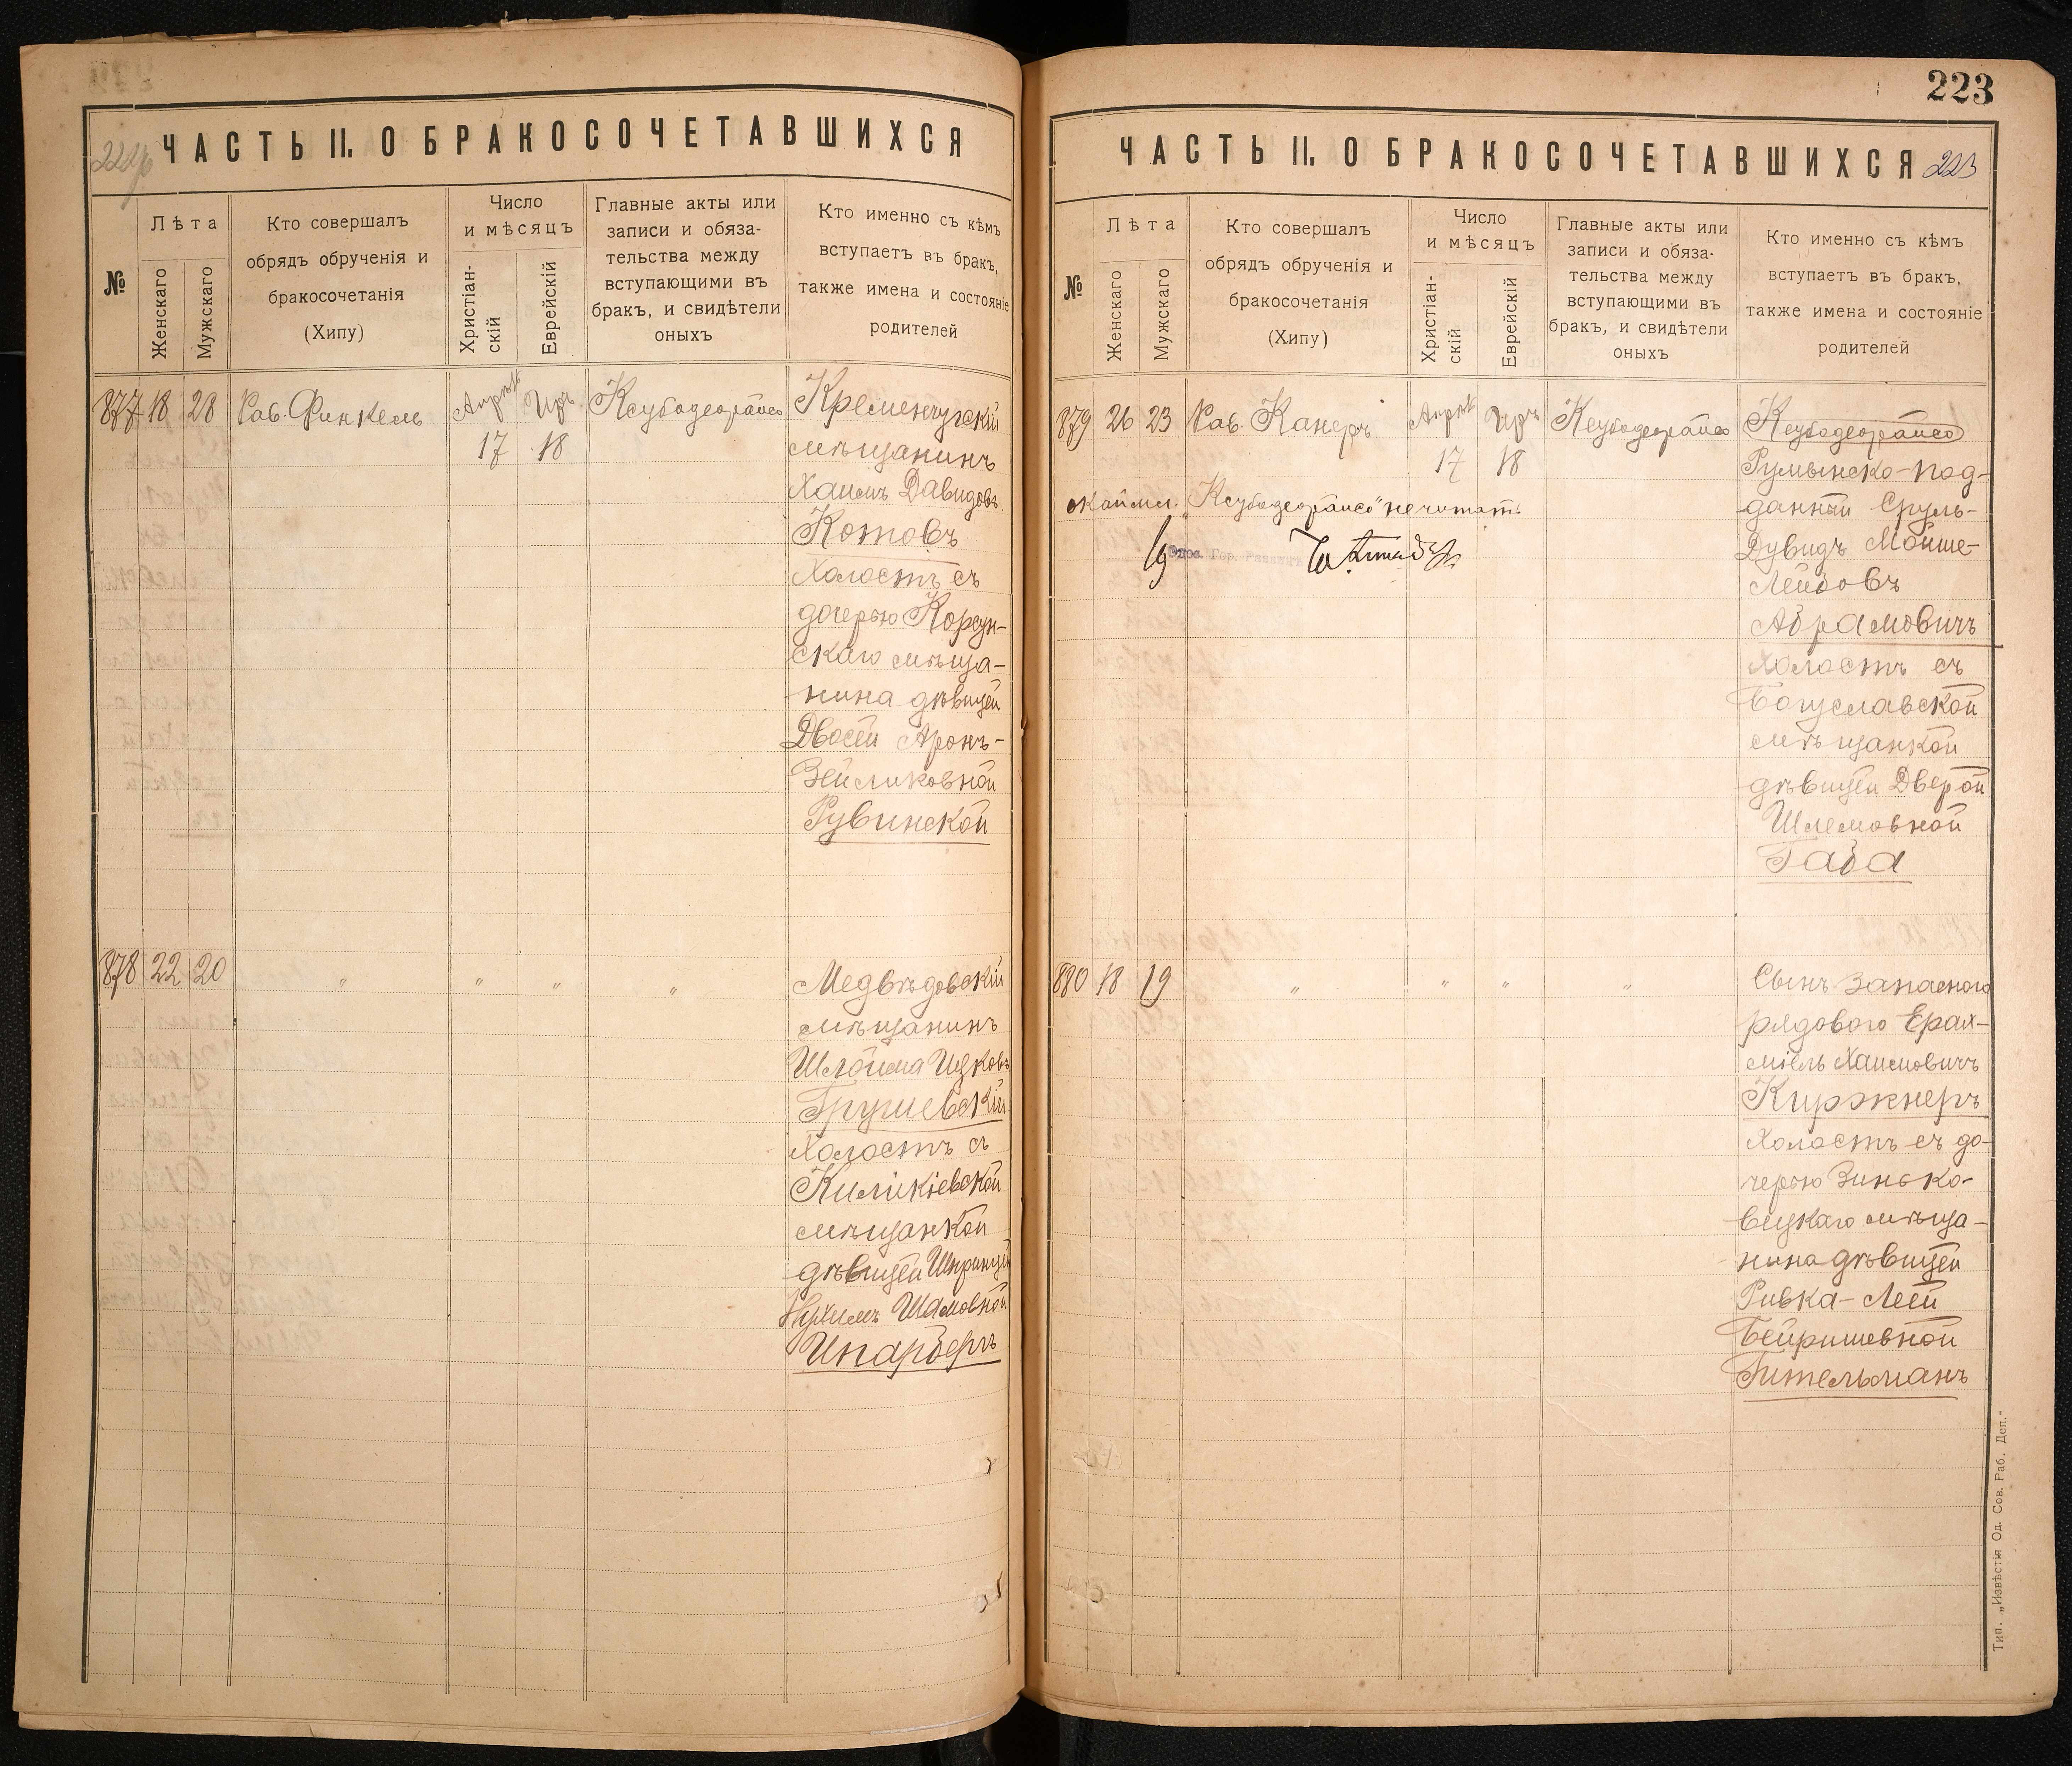 223
ЧАСТЬ II. О БРАКОСОЧЕТАВШИХСЯ
№
Лѣта
Женскаго
Мужскаго
Кто совершалъ
обрядъ обрученія и
бракосочетанія
(Хипу)
Число
и мѣсяцъ
Христіан-
скій
Еврейскій
Главные акты или
записи и обяза-
тельства между
вступающими въ
бракъ, и свидѣтели
оныхъ
Кто именно съ кѣмъ
вступаетъ въ бракъ,
также имена и состояніе
родителей
877 18 28 Рав. Финкель
17 18
Кременчугскій
мѣщанинъ
Хаимъ Давидовъ
Котовъ
Холостъ съ
дочерью Корсун-
скаго мѣща-
нина дѣвицей
Двосей Аронъ-
Зейликовной
Рувинской
878 22 20 " " " "
Медвѣдовскій
мѣщанинъ
Шлойма Ицковъ
Грушевскій
Холостъ съ
Киликіевской
мѣщанкой
дѣвицей Шпринцей
Нухимъ Шамовной
Инарбергъ
ЧАСТЬ II. О БРАКОСОЧЕТАВШИХСЯ 223
№
Лѣта
Женскаго
Мужскаго
Кто совершалъ
обрядъ обрученія и
бракосочетанія
(Хипу)
Число
и мѣсяцъ
Христіан-
скій
Еврейскій
Главные акты или
записи и обяза-
тельства между
вступающими въ
бракъ, и свидѣтели
оныхъ
Кто именно съ кѣмъ
вступаетъ въ бракъ,
также имена и состояніе
родителей
879 26 23 Рав. Канеръ
17 18
не читать
Румынско-под-
данный Сруль-
Дувидъ Мойше-
Лейбовъ
Абрамовичъ
Холостъ съ
Богуславской
мѣщанкой
дѣвицей Дверой
Шлемовной
Габа
880 18 19 " " " "
Сынъ Запасного
рядового Ерах-
міель Хаимовичъ
Киржнеръ
Холостъ съ до-
черью Зинько-
вецкаго мѣща-
нина дѣвицей
Ривка-Леей
Бейришевной
Гительманъ
Тип. „Извѣстія Од. Сов. Раб. Деп."